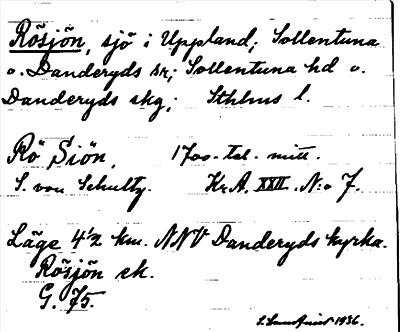 Rösjön, sjö i Uppland; Sollentuna
o. Danderyds sr; Sollentuna hd o.
Danderyds skg; Sthlms l.
Rö Siön, 1700-tal. mitt.
S. von Schultz. Kr.A. XXII. N:o 7.
Läge 4½ km. NNV Danderyds kyrka.
Rösjön ek.
G. 75.
1936.